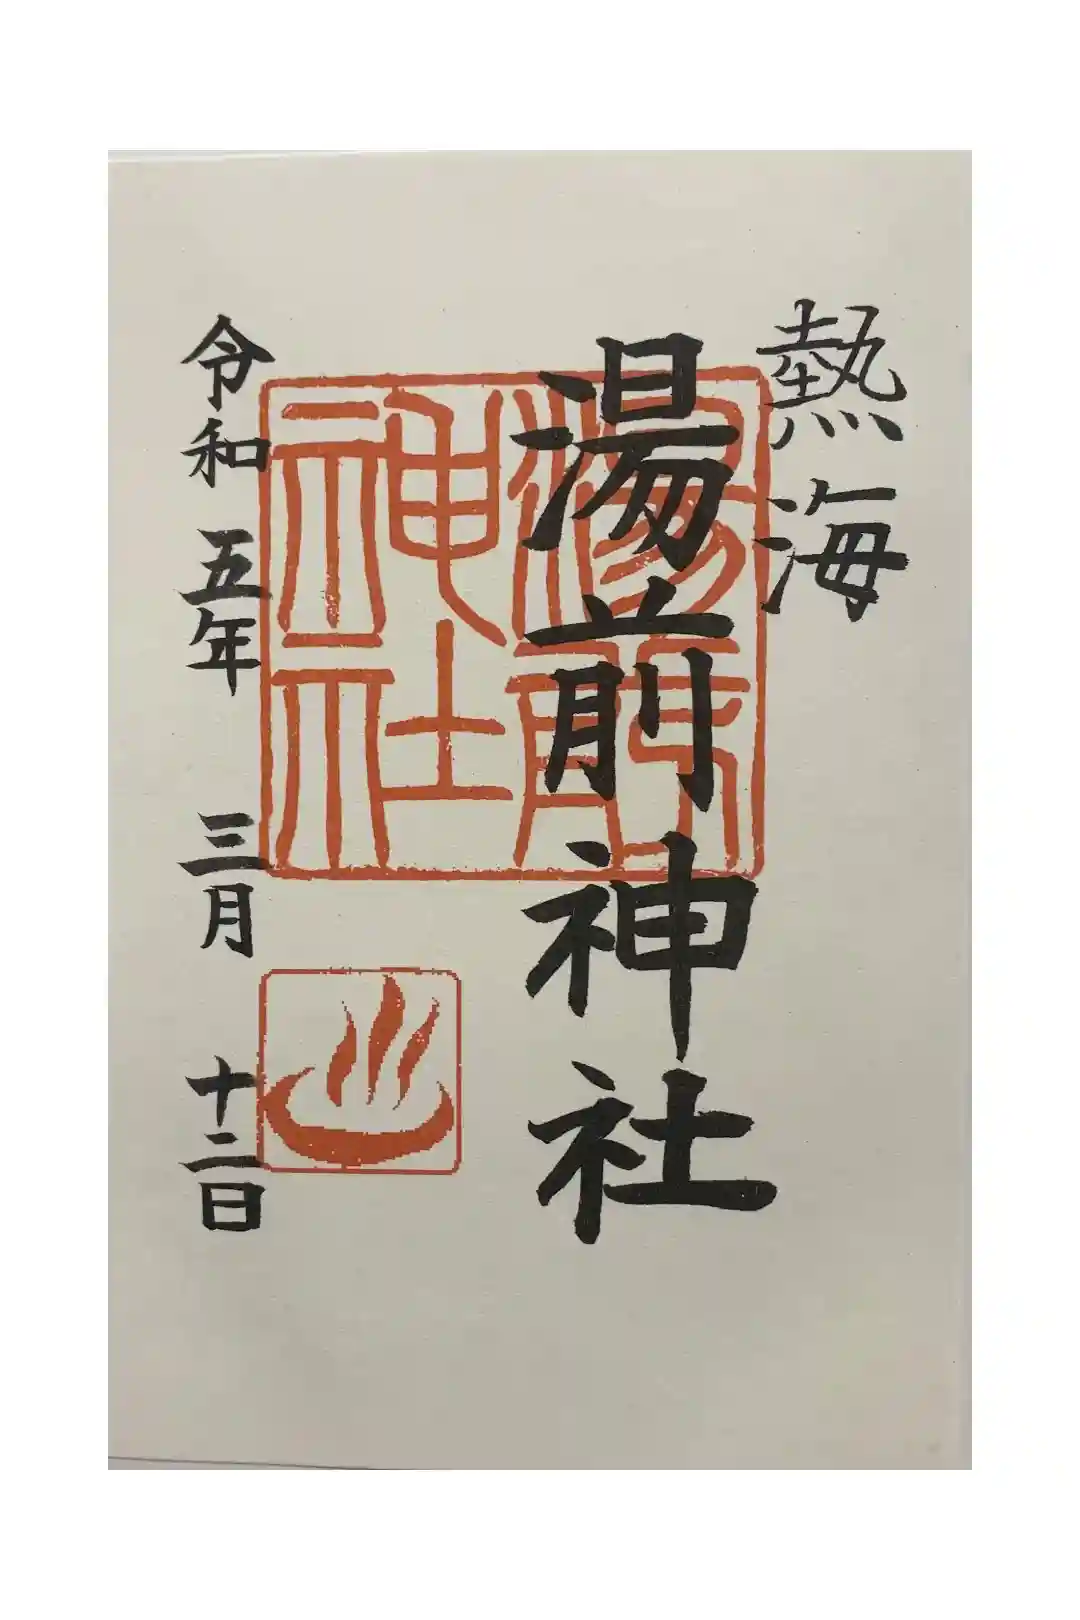 熱海
湯前神社
湯前
神社
令和五年三月十二日